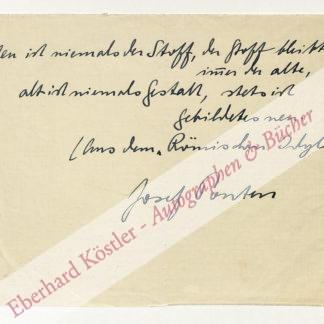 ist niemals der Stoff, der Stoff bleibt
immer der alte,
alt ist niemals Gestalt, stets ist
Gebildetes neu
(Aus dem „Römischen
Josef Ponten
Eberhard Köstler - Autographen & Bücher